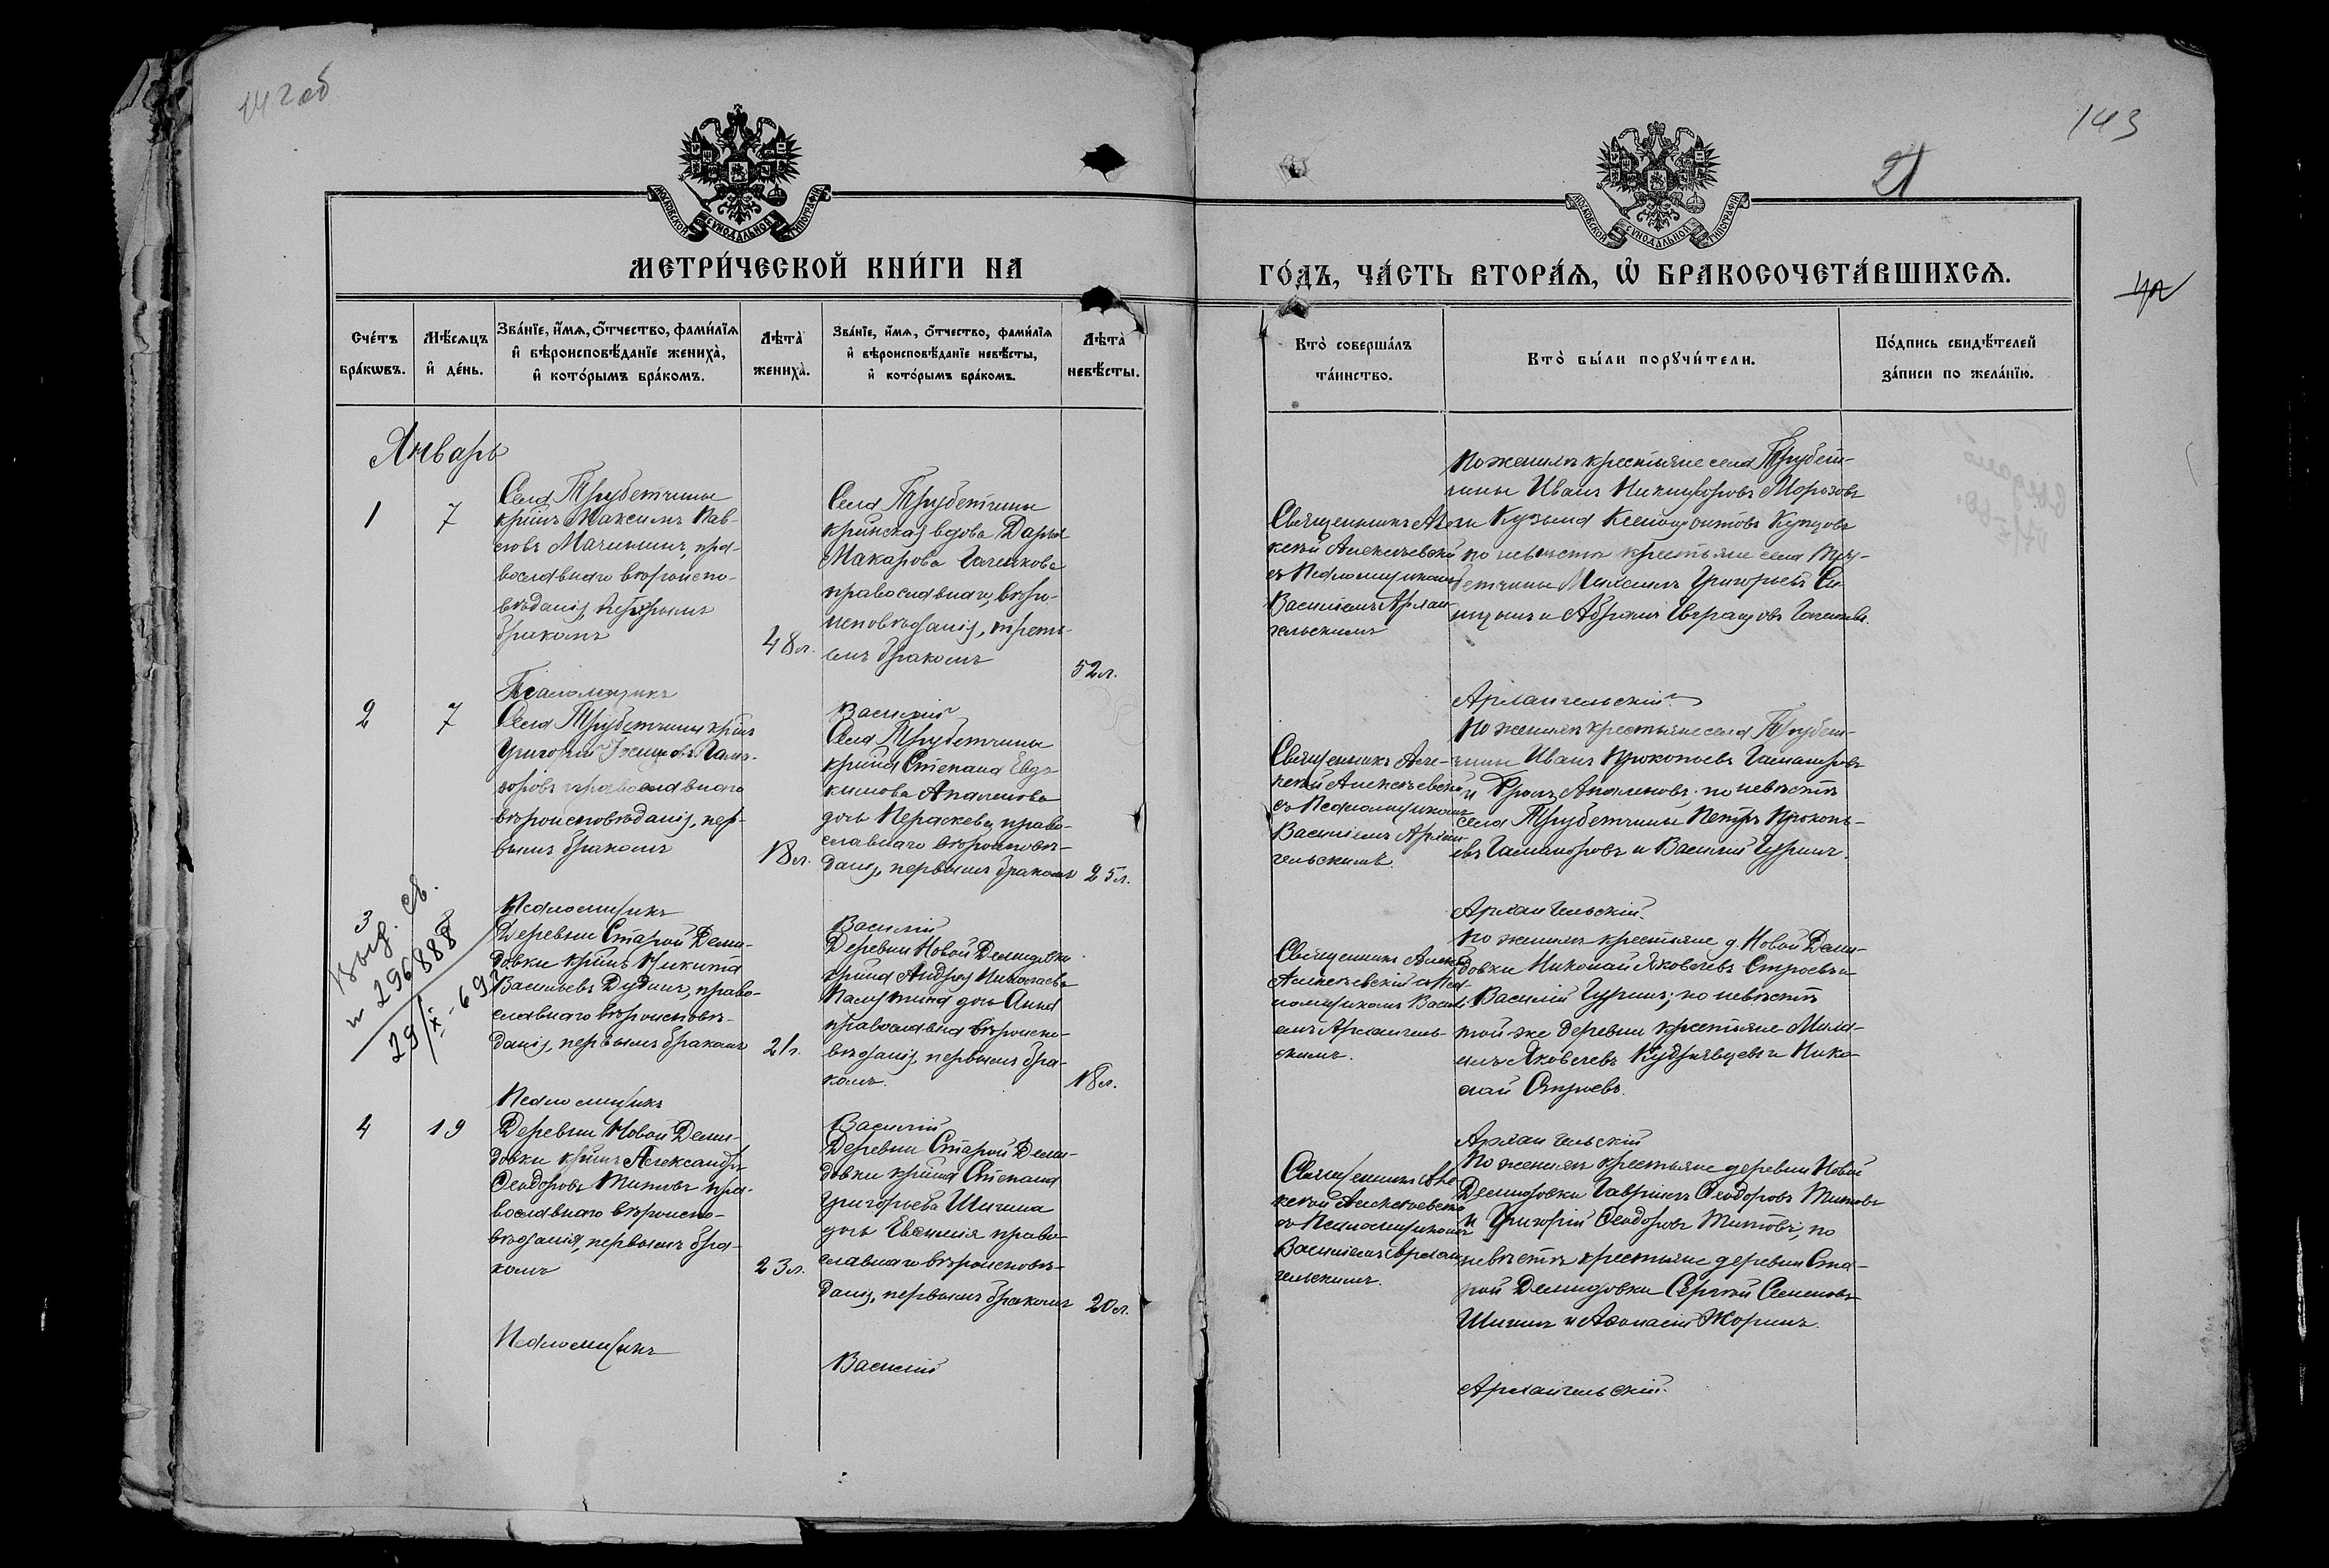 142 об
143
21
МОСКОВСКОЙ СУНОДАЛЬНОЙ ТИПОГРАФІИ
МОСКОВСКОЙ СУНОДАЛЬНОЙ ТИПОГРАФІИ
МЕТРИ́ЧЕСКОЙ КНИ́ГИ НА
ГО́ДЪ, ЧА́СТЬ ВТОРА́Ѧ, Ѡ҆ БРАКОСОЧЕТА́ВШИХСѦ.
Сче́тъ бра́кѡвъ.
Мѣ́сѧцъ и҆ де́нь.
Зва́нїе, и҆́мѧ, ѻ҆́тчество, фами́лїѧ и҆ вѣроисповѣ́данїе жениха̀, и҆ кото́рымъ бра́комъ.
Лѣта̀ жениха̀.
Зва́нїе, и҆́мѧ, ѻ҆́тчество, фами́лїѧ и҆ вѣроисповѣ́данїе невѣ́сты, и҆ кото́рымъ бра́комъ.
Лѣта̀ невѣ́сты.
Кто̀ соверша́лъ та́инство.
Кто̀ бы́ли порꙋчи́тели.
По́дпись свидѣ́телей за́писи по жела́нїю.
Январь
1
7
Села Трубетчины
крнинъ Максимъ Пав-
ловъ Мачинъ, пра-
вославнаго вѣроиспо-
вѣданія, первымъ
бракомъ
48 л.
Села Трубетчины
кринская вдова Дарья
Макарова
православнаго вѣро-
исповѣданія, треть-
имъ бракомъ
52 л.
Священникъ Але-
ксѣй Алексѣевскій
съ Псаломщикомъ
Василіемъ Архан-
гельскимъ
По женихѣ крестьяне села Трубет-
чины Иванъ Никифоровъ Морозовъ
и Кузьма Ксенофонтовъ Купцовъ
по невѣстѣ крестьяне села Тру-
бетчины Максимъ Григорьевъ Си-
и Абрамъ
Псаломщикъ
Василій
Архангельскій
2
7
Села Трубетчины крнинъ
Григорій
православнаго
вѣроисповѣданія, пер-
вымъ бракомъ
18 л.
Села Трубетчины
крнина Степана Евдо-
кимова
дочь Параскева, право-
славнаго вѣроисповѣ-
данія, первымъ бракомъ
25 л.
Священникъ Але-
ксѣй Алексѣевскій
съ Псаломщикомъ
Василіемъ Архан-
гельскимъ.
По женихѣ крестьяне села Трубет-
чины Иванъ Прокопьевъ
и Фролъ; по невѣстѣ
села Трубетчины Петръ Прокопь-
евъ и Василій Гуринъ.
Псаломщикъ
Василій
Архангельскій.
3
8
Выд. св.
н 296888
29/X-69
Деревни Старой Деми-
довки крнинъ Никита
Васильевъ Дудинъ, право-
славнаго вѣроисповѣ-
данія, первымъ бракомъ
21 г.
Деревни Новой Демидовки
крнина Андрея Николаева
дочь Анна
православна вѣроиспо-
вѣданія, первымъ бра-
комъ.
18 л.
Священникъ Алексѣй
Алексѣевскій съ Пса-
ломщикомъ Васили-
емъ Архангель-
скимъ.
По женихѣ крестьяне д. Новой Деми-
довки Николай Яковлевъ Строевъ и
Василій Гуринъ; по невѣстѣ
той же деревни крестьяне Миха-
илъ Яковлевъ Кудрявцевъ и Нико-
лай Строевъ.
Псаломщикъ
Василій
Архангельскій
4
19
Деревни Новой Деми-
довки крнинъ Александръ
Ѳеодоровъ Титовъ пра-
вославнаго вѣроиспо-
вѣданія, первымъ бра-
комъ
23 л.
Деревни Старой Деми-
довки крнина Степана
Григорьева Шигина
дочь Евѳимія право-
славнаго вѣроисповѣ-
данія, первымъ бракомъ
20 л.
Священникъ Але-
ксѣй Алексѣевскій
съ Псаломщикомъ
Василіемъ Архан-
гельскимъ.
По женихѣ крестьяне деревни Новой
Демидовки Гавріилъ Ѳеодоровъ Титовъ
и Григорій Ѳеодоровъ Титовъ, по
невѣстѣ крестьяне деревни Ста-
рой Демидовки Сергѣй Семеновъ
Шигинъ и Аѳанасій Жоринъ.
Псаломщикъ
Василій
Архангельскій.